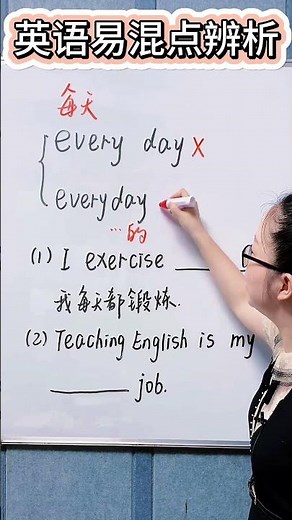 英语易混点辨析
每天
every day x
everyday
...的
(1) I exercise ____
我每天都锻炼.
(2) Teaching English is my
______ job.